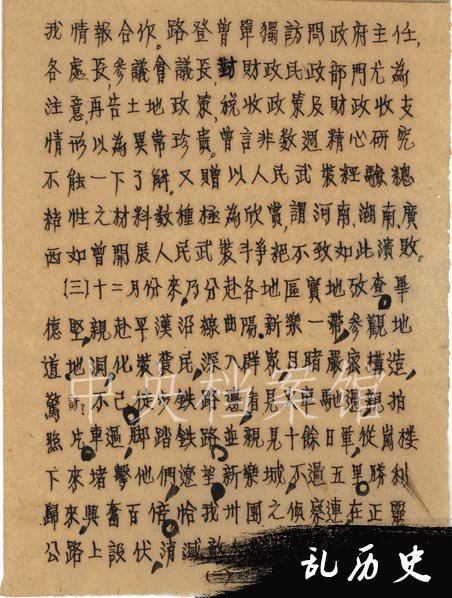 我情報合作。路登曾單獨訪問政府主任,
各處長,參議會議長,對財政民政部門尤為
注意,再告土地政策,税收政策及財政收支
情形以為異常珍貴。曾言非数週精心研究
不能一下了解。又贈以人民武裝經驗總
結性之材料数種極為欣賞,謂河南、湖南、廣
西如曾開展人民武裝斗争絕不致如此潰敗。
(三)十二月份來,乃分赴各地區實地攷查。畢
德堅,親赴平漢沿線曲陽、新樂一帶,參觀地
道地洞,化裝農民,深入群衆,目睹嚴密構造,
驚訝不已
照片,車過,脚踏鉄路,並親見十餘日華,從崗楼
下來堵擊他們,遼望新樂城,不過五里。勝利
歸來,興奮百倍。恰我卅團之偵察連在正靈
公路上設伏,消滅敵
中央档案馆
乱历史